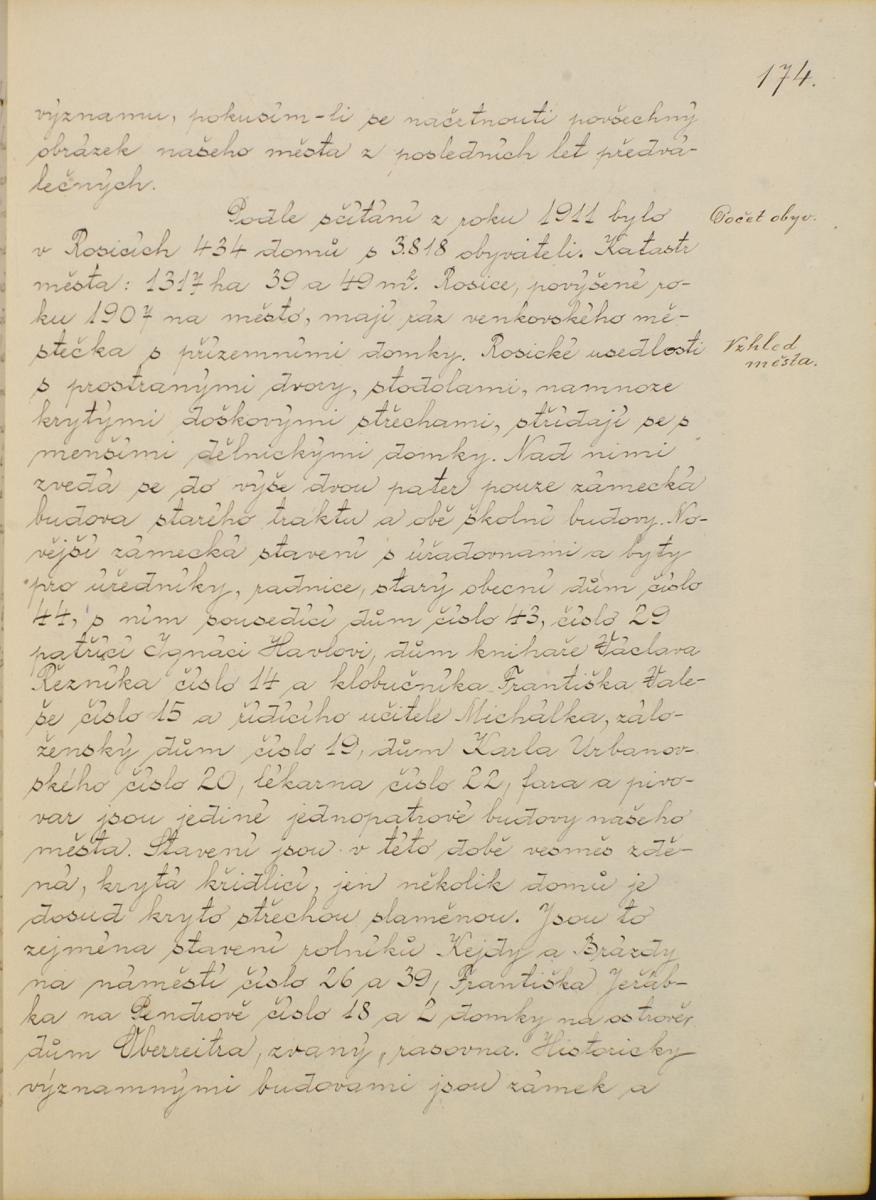 174.
významu, pokusím-li se načrtnouti povšechný
obrázek našeho města z posledních let předvá-
lečných.
Podle sčítání z roku 1911 bylo
Počet obyv.
v Rosicích 434 domů s 3.818 obyvateli. Katastr
města: 1317 ha 39 a 49 m². Rosice, povýšené ro-
ku 1907 na město, mají ráz venkovského mě-
stečka s přízemními domky. Rosické usedlosti
Vzhled
města.
s prostranými dvory, stodolami, namnoze
krytými doškovými střechami, střídají se s
menšími dělnickými domky. Nad nimi
zvedá se do výše dvou pater pouze zámecká
budova starého traktu a obě školní budovy. No-
vější zámecká stavení s úřadovnami a byty
pro úředníky, radnice, starý obecní dům číslo
44, s ním sousedící dům číslo 43, číslo 29
patřící Ignáci Havlovi, dům knihaře Václava
Řezníka číslo 14 a klobučníka Františka Vale-
še číslo 15 a řídícího učitele Michálka, zálo-
ženský dům číslo 19, dům Karla Urbanov-
ského číslo 20, lékarna číslo 22, fara a pivo-
var jsou jediné jednopatrové budovy našeho
města. Stavení jsou v této době vesměs zdě-
ná, krytá křidlicí, jen několik domů je
dosud kryto střechou slaměnou. Jsou to
zejména stavení rolníků Kejdy a Brázdy
na náměstí číslo 26 a 39, Františka Jeřáb-
ka na Pendrově číslo 18 a 2 domky na ostrově,
dům Oberreitra, zvaný „rasovna. Historicky
významnými budovami jsou zámek a